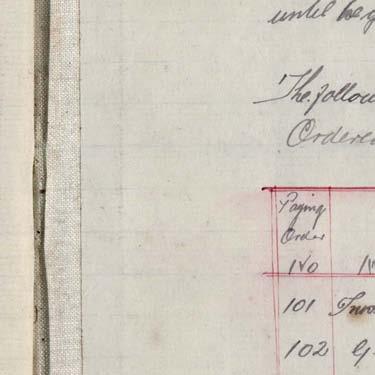 until he
The follow
Ordered
Paying
Order
No
101
102 G